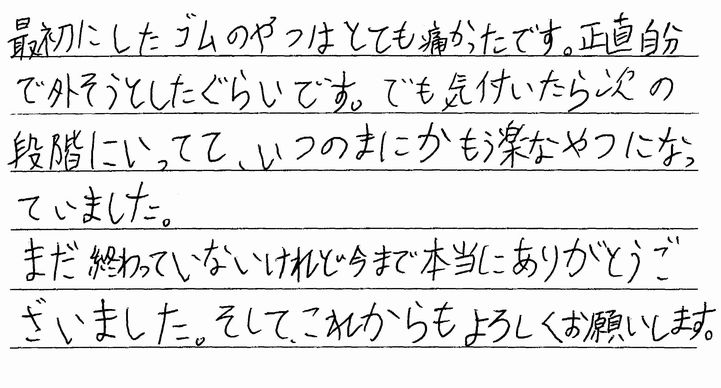 最初にしたゴムのやつはとても痛かったです。正直自分
で外そうとしたぐらいです。でも気付いたら次の
段階にいってて、いつのまにかもう楽なやつになっ
ていました。
まだ終わっていないけれど今まで本当にありがとうご
ざいました。そして、これからもよろしくお願いします。